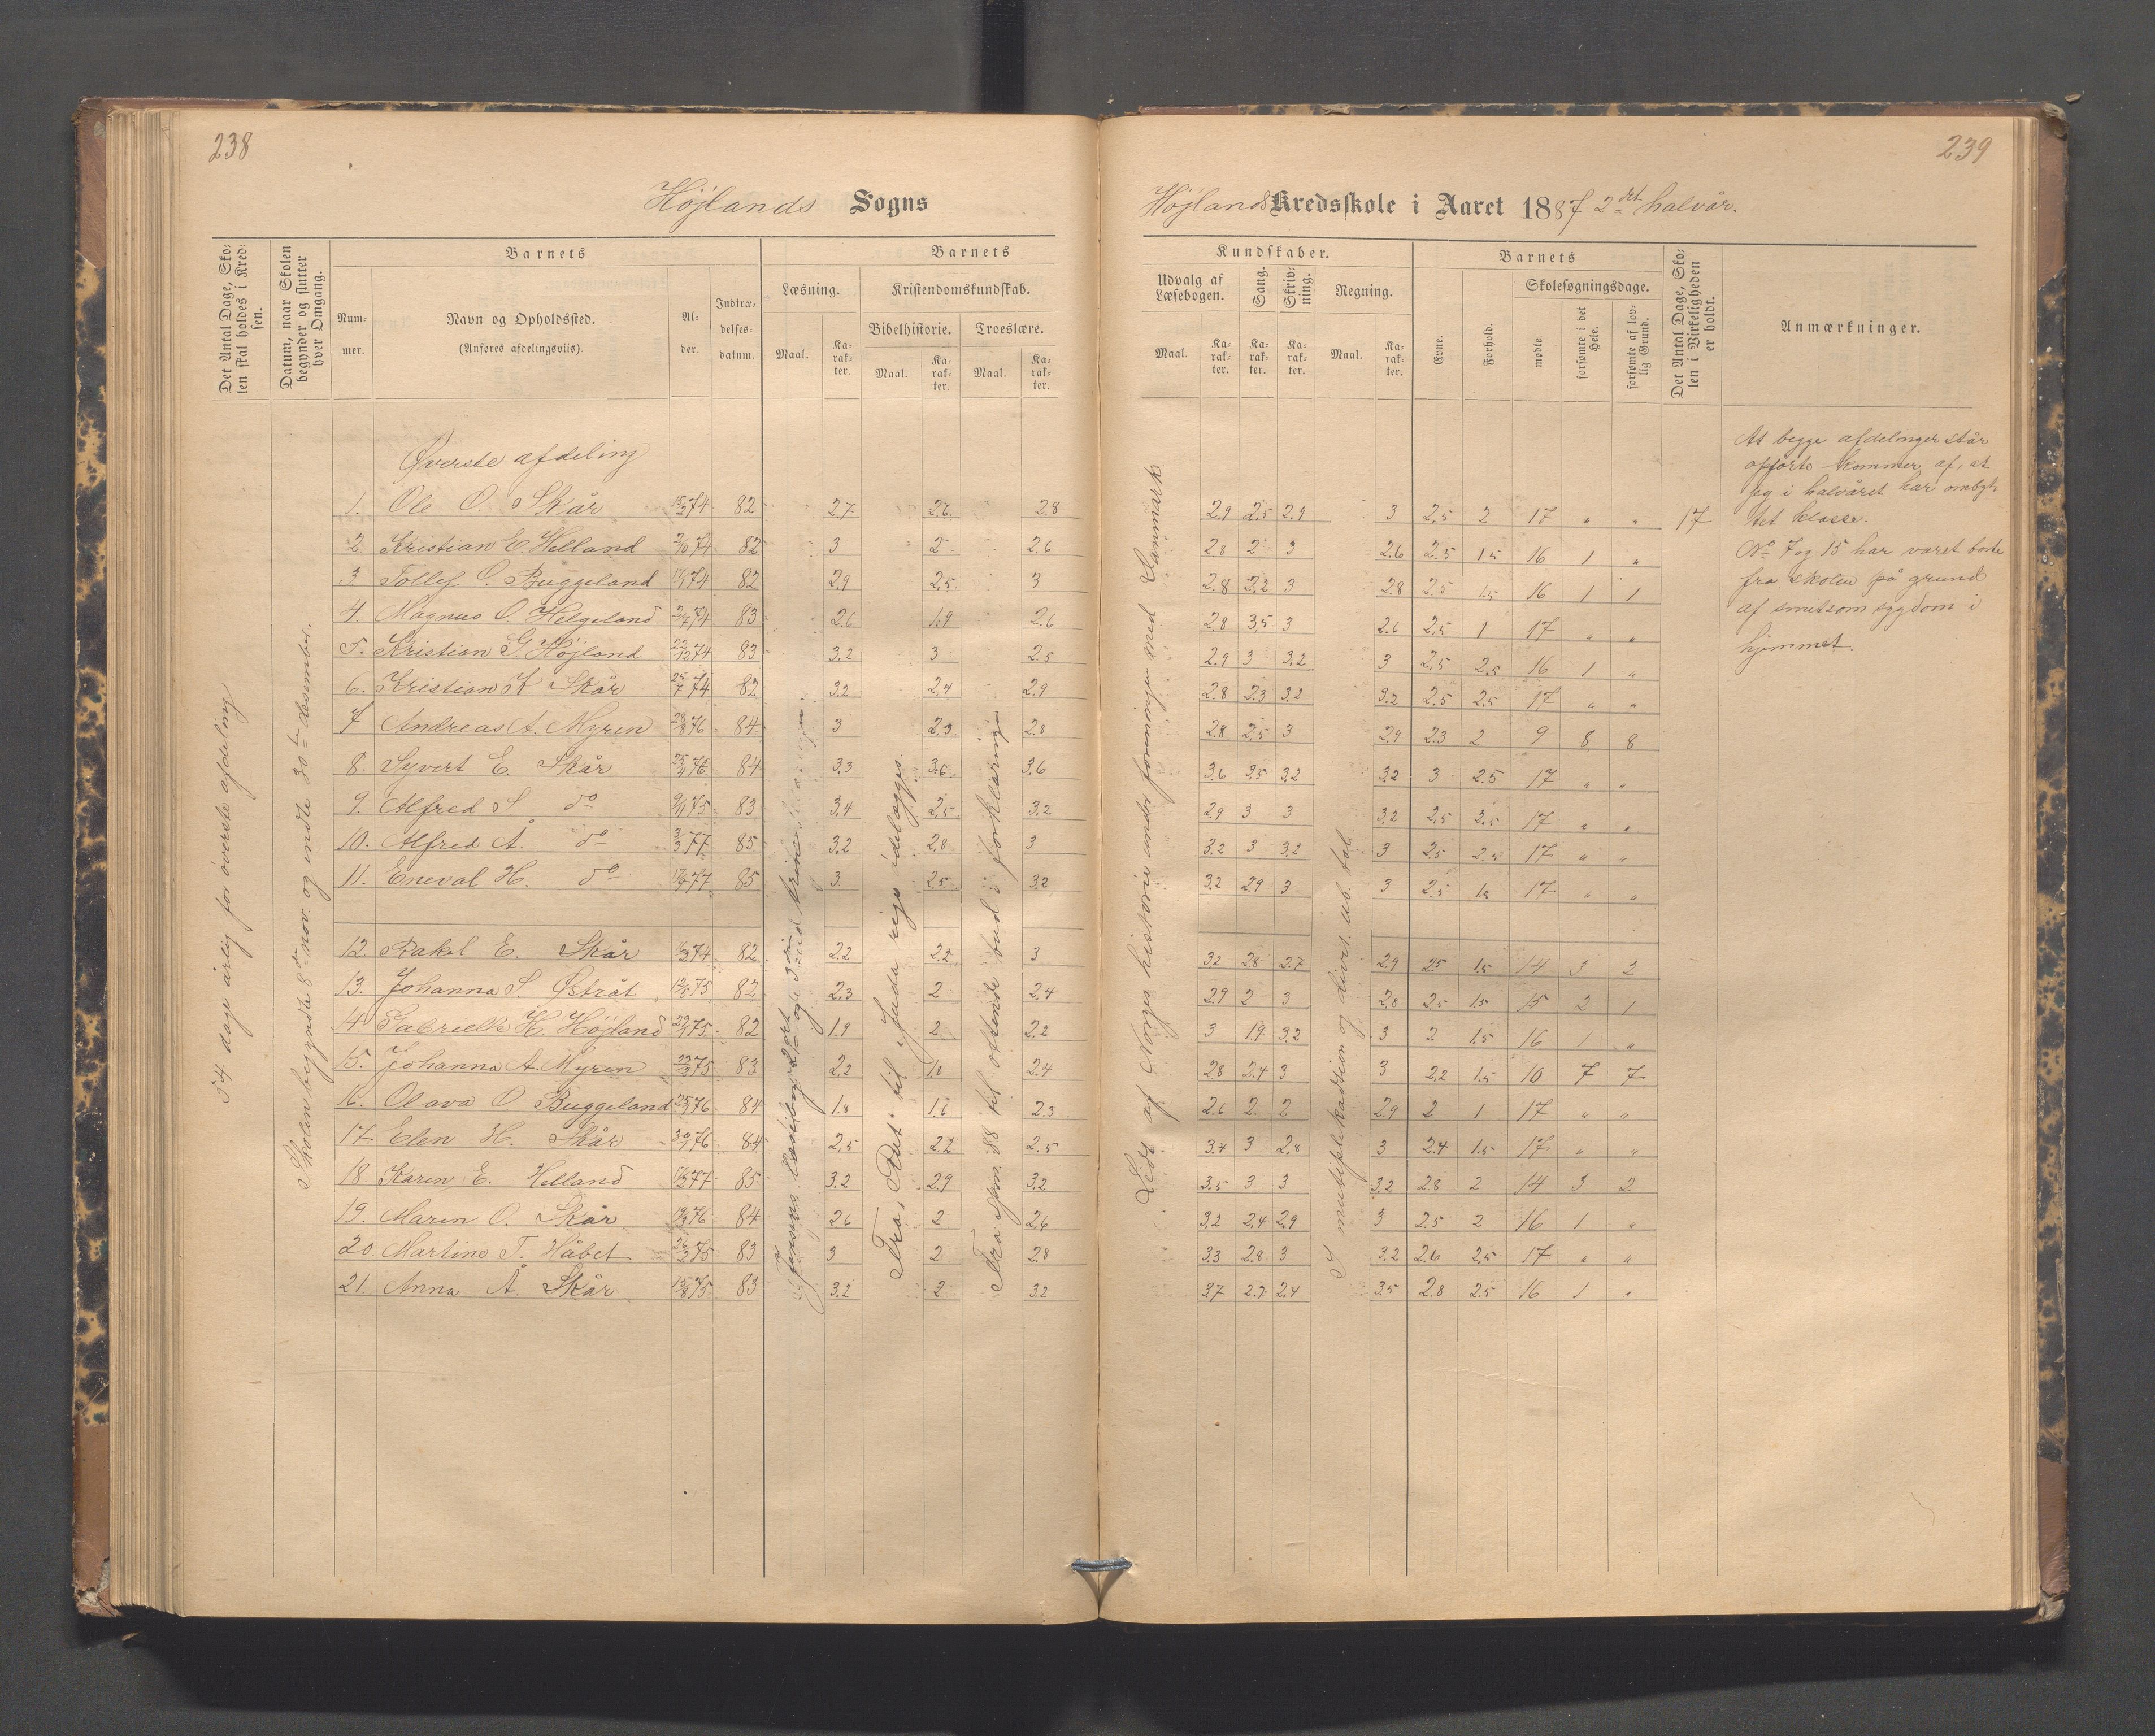 238
Højlands Sogns
Det Antal Dage, Sko-
len skal holdes i Kred-
sen.
Datum, naar Skolen
begynder og slutter
hver Omgang.
Barnets
Num-
mer.
Navn og Opholdssted.
(Anføres afdelingsviis).
Al-
der.
Indtræ-
delses-
datum.
Barnets
Læsning.
Kristendomskundskab.
Bibelhistorie.
Troeslære.
Maal.
Ka-
rak-
ter.
Maal.
Ka-
rak-
ter.
Maal.
Ka-
rak-
ter.
54 dage årlig for øverste afdeling
Skolen begyndte 8de nov. og endte 30te desember.
Øverste afdeling
1. Ole O. Skår 15/2 74 82 2.7 2.6 2.8
2. Kristian E Helland 2/10 74 82 3 2 2.6
3. Tollef O. Buggeland 17/1 74 82 2.9 2.5 3
4. Magnus O. Helgeland 74 83 2.6 1.9 2.6
5. Kristian G. Højland 22/12 74 83 3.2 3 2.5
6. Kristian K. Skår 25/7 74 82 3.2 2.4 2.9
7 Andreas A. Myren 28/8 76 84 3 2.3 2.8
8. Syvert E. Skår 25/4 76 84 3.3 3.6 3.6
9. Alfred S. do 9/11 75 83 3.4 2.5 3.2
10. Alfred Å. do 3/3 77 85 3.2 2.8 3
11. Eneval H. do 77 85 3. 2.5 3.2
12. Rakel E. Skår 74 82 2.2 2.2 3
13. Johanna S. Østråt 12/5 75 82 2.3 2 2.4
14 Gabrielle H. Højland 29/1 75 82 1.9 2 2.2
15. Johanna A. Myren 23/2 75 83 2.2 1.8 2.4
16. Olava O Buggeland 76 84 1.8 1.6 2.3
17. Elen H. Skår 30/1 76 84 2.5 2.2 2.5
18. Karen E. Helland 77 85 3.2 2.9 3.2
19. Maren O. Skår 76 84 2.6 2 2.6
20. Martine T. Håbet 75 83 3 2 2.8
21. Anna Å. Skår 15/8 75 83 3.2 2 3.2
Jensens læsebog 2det og 3die trin
Fra "Rut" til Juda rige ødelægges.
Fra spm. 88 til ottende bud i forklaringen
239
Højlands Kredsskole i Aaret 1887 2det halvår.
Kundskaber.
Udvalg af
Læsebogen.
Sang.
Skriv-
ning.
Regning.
Maal.
Ka-
rak-
ter.
Ka-
rak-
ter.
Ka-
rak-
ter.
Maal.
Ka-
rak-
ter.
Barnets
Evne.
Forhold.
Skolesøgningsdage.
mødte.
forsømte i det
Hele.
forsømte af lov-
lig Grund.
Det Antal Dage, Sko-
len i Virkeligheden
er holdt.
Anmærkninger.
Lidt af Norges historie under foreningen med Danmark
I multiplikasion og divis. ub. tal.
2.9 2.5 2.9 3 2.5 2 17 " " 17
2.8 2 3 2.6 2.5 1.5 16 1 "
2.8 2.2 3 2.8 2.5 1.5 16 1 1
2.8 3.5 3 2.6 2.5 1 17 " "
2.9 3 3.2 3 2.5 2.5 16 1 "
2.8 2.3 3.2 3.2 2.5 2.5 17 " "
2.8 2.5 3 2.9 2.3 2 9 8 8
3.6 3.5 3.2 3.2 3 2.5 17 " "
2.9 3 3 3.2 2.5 2.5 17 " "
3.2 3 3.2 3 2.5 2.5 17 " "
3.2 2.9 3 3 2.5 1.5 17 " "
3.2 2.8 2.7 2.9 2.5 1.5 14 3 2
2.9 2 3 2.8 2.5 1.5 15 2 1
3 1.9 3.2 3 2 1.5 16 1 "
2.8 2.4 3 3 2.2 1.5 10 7 7
2.6 2 2 2.9 2 1 17 " "
3.4 3 2.8 3 2.4 1.5 17 " "
3.5 3 3 3.2 2.8 2 14 3 2
3.2 2.4 2.9 3 2.5 2 16 1 "
3.3 2.8 3 3.2 2.6 2.5 17 " "
3.7 2.7 2.4 3.5 2.8 2.5 16 1 "
At begge afdelinger står
opførte kommer af, at
jeg i halvåret har ombyt-
tet klasse.
No 7 og 15 har været borte
fra skolen på grund
af smitsom sygdom i
hjemmet.